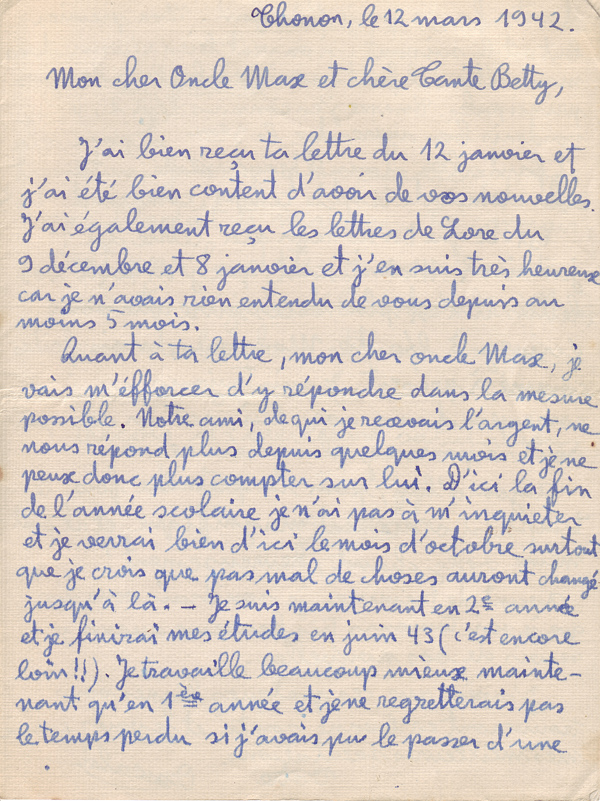 Thonon, le 12 mars 1942.
Mon cher Oncle Max et chère Tante Betty,
J'ai bien reçu ta lettre du 12 janvier et
j'ai été bien content d'avoir de vos nouvelles.
J'ai également reçu les lettres de Lore du
9 décembre et 8 janvier et j'en suis très heureux
car je n'avais rien entendu de vous depuis au
moins 5 mois.
Quant à ta lettre, mon cher oncle Max, je
vais m'éfforcer d'y répondre dans la mesure
possible. Notre ami, de qui je recevais l'argent, ne
nous répond plus depuis quelques mois et je ne
peux donc plus compter sur lui. D'ici la fin
de l'année scolaire je n'ai pas à m'inquieter
et je verrai bien d'ici le mois d'octobre surtout
que je crois que pas mal de choses auront changé
jusqu'à là. - Je suis maintenant en 2e année
et je finirai mes études en juin 43 (c'est encore
loin!!). Je travaille beaucoup mieux mainte-
nant qu'en 1ère année et je ne regretterais pas
le temps perdu si j'avais pu le passer d'une